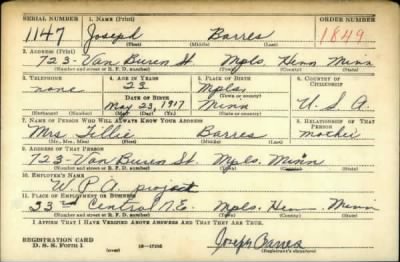 SERIAL NUMBER 1. NAME (Print) ORDER NUMBER
1147 Joseph Barres 1849
(First) (Middle) (Last)
2. ADDRESS (Print)
723- Van Buren St. Mpls. Henn Minn
(Number and street or R. F. D. number) (Town) (County) (State)
3. TELEPHONE 4. AGE IN YEARS 5. PLACE OF BIRTH 6. COUNTRY OF CITIZENSHIP
none 23 Mpls.
DATE OF BIRTH (Town or county)
May 23, 1917 Minn U.S.A.
(Exchange) (Number) (Mo.) (Day) (Yr.) (State or country)
7. NAME OF PERSON WHO WILL ALWAYS KNOW YOUR ADDRESS 8. RELATIONSHIP OF THAT PERSON
Mrs Tillie Barres mother
(Mr., Mrs., Miss) (First) (Middle) (Last)
9. ADDRESS OF THAT PERSON
723- Van Buren St. Mpls. Minn
(Number and street or R. F. D. number) (Town) (County) (State)
10. EMPLOYER'S NAME
W. P. A. project
11. PLACE OF EMPLOYMENT OR BUSINESS
33rd Central N.E. Mpls. Hen Minn
(Number and street or R. F. D. number) (Town) (County) (State)
I AFFIRM THAT I HAVE VERIFIED ABOVE ANSWERS AND THAT THEY ARE TRUE.
REGISTRATION CARD
D. S. S. FORM 1 (over) Joseph Barres
(Registrant's signature)